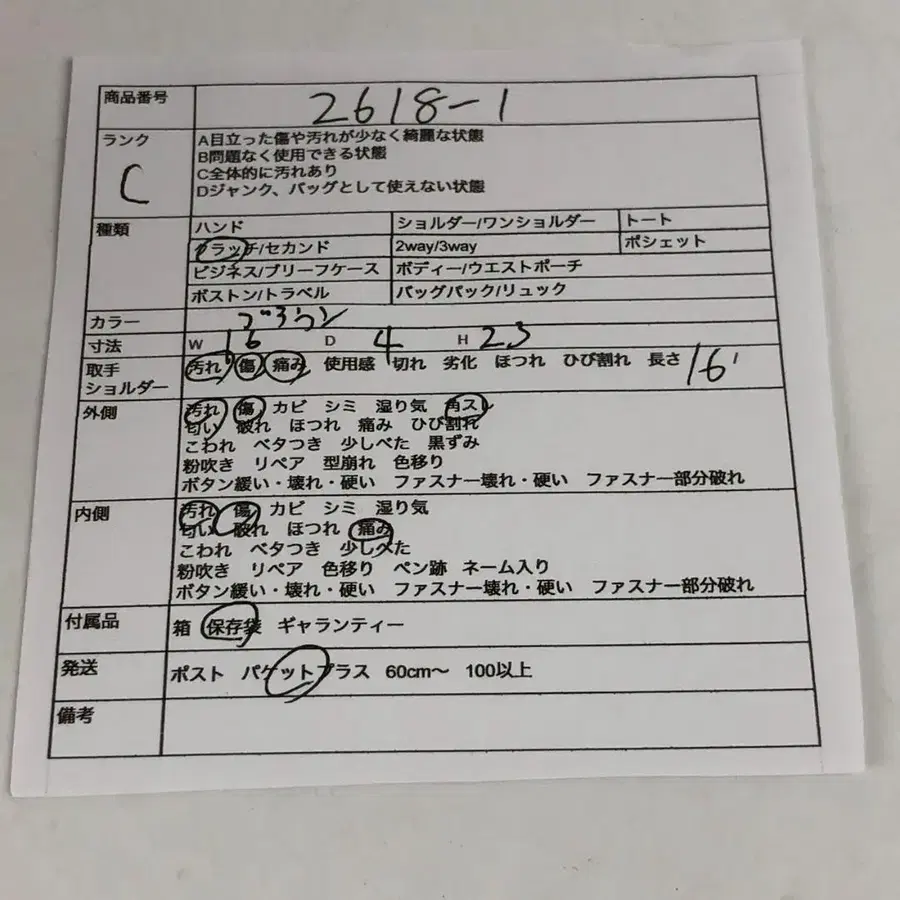 商品番号 2618-1
ランク C
A目立った傷や汚れが少なく綺麗な状態
B問題なく使用できる状態
C全体的に汚れあり
Dジャンク、バッグとして使えない状態
種類 ハンド ショルダー/ワンショルダー トート
クラッチ/セカンド 2way/3way ポシェット
ビジネス/ブリーフケース ボディー/ウエストポーチ
ボストン/トラベル バッグパック/リュック
カラー ブラウン
寸法 W 16 D 4 H 23
取手 汚れ 傷 痛み 使用感 切れ 劣化 ほつれ ひび割れ 長さ 16
ショルダー
外側 汚れ 傷 カビ シミ 湿り気 角スレ
匂い 破れ ほつれ 痛み ひび割れ
こわれ ベタつき 少しべた 黒ずみ
粉吹き リペア 型崩れ 色移り
ボタン緩い・壊れ・硬い ファスナー壊れ・硬い ファスナー部分破れ
内側 汚れ 傷 カビ シミ 湿り気
匂い 破れ ほつれ 痛み
こわれ ベタつき 少しべた
粉吹き リペア 色移り ペン跡 ネーム入り
ボタン緩い・壊れ・硬い ファスナー壊れ・硬い ファスナー部分破れ
付属品 箱 保存袋 ギャランティー
発送 ポスト パケットプラス 60cm～ 100以上
備考